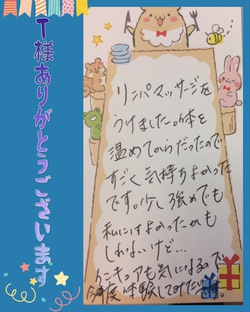 T様ありがとうございます
リンパマッサージを
うけました。体を
温めてからだったので
すごく気持ちよかった
です。少し強めでも
私にはよかったかも
しれないけど…
ハンキュアも気になるので
今度体験してみたいです。